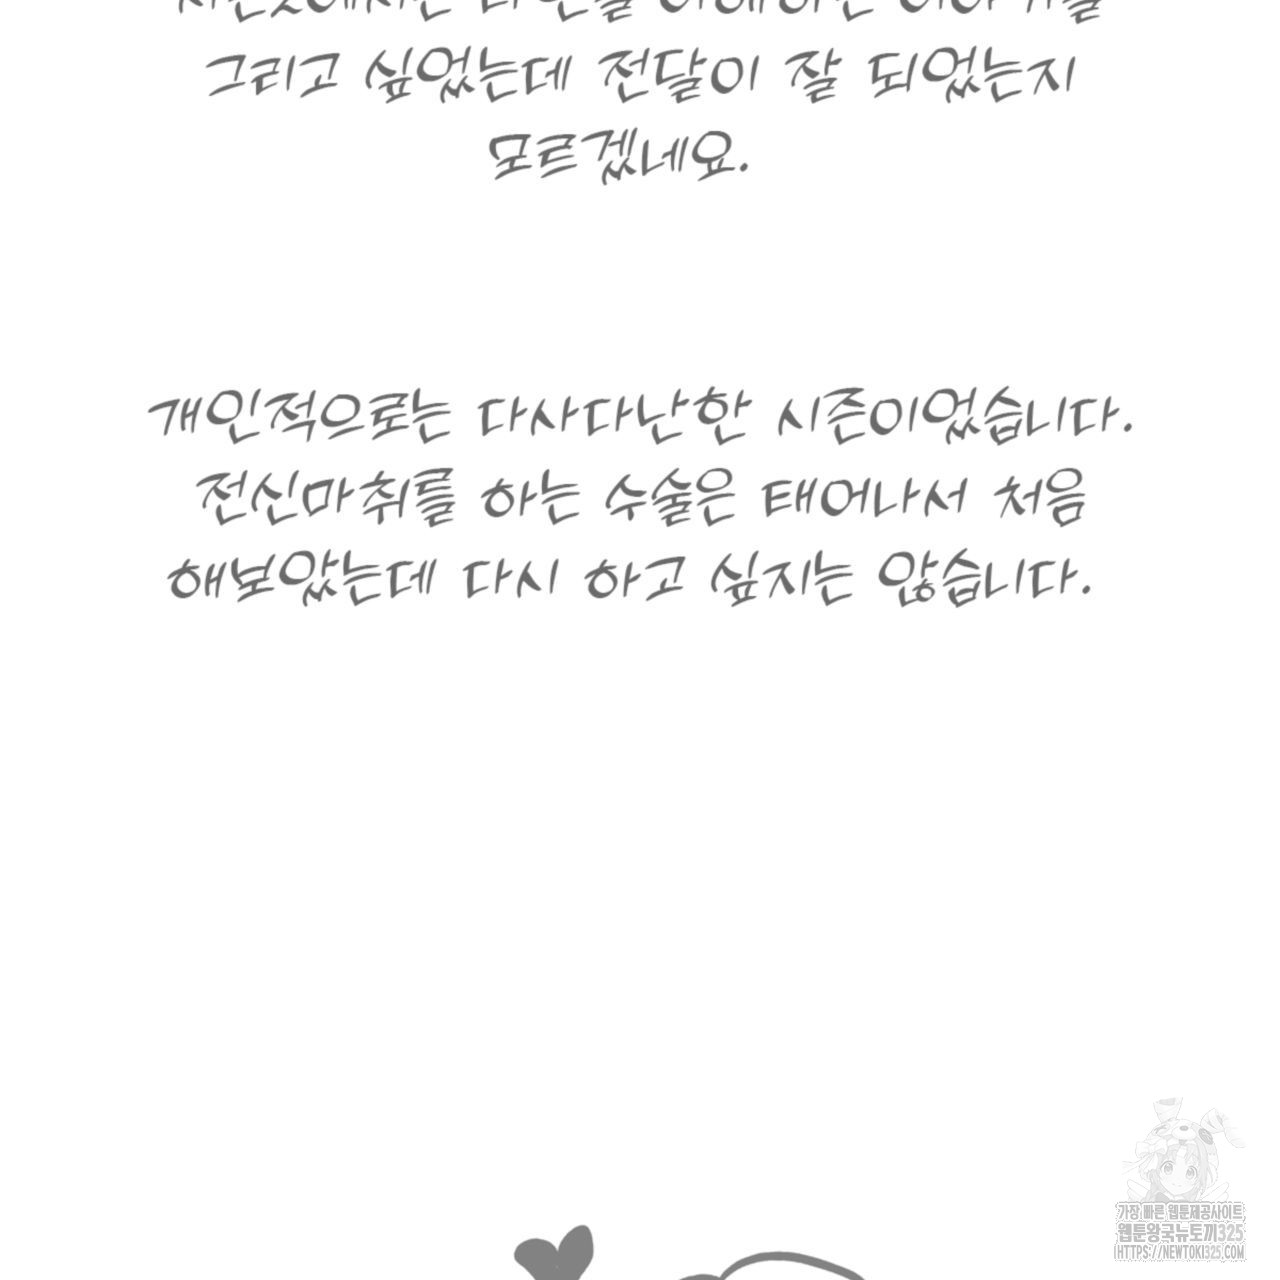 그리고 싶었는데 전달이 잘 되었는지
모르겠네요.
개인적으로는 다사다난한 시즌이었습니다.
전신마취를 하는 수술은 태어나서 처음
해보았는데 다시 하고 싶지는 않습니다.
가장 빠른 웹툰제공사이트
웹툰왕국뉴토끼325
HTTPS://NEWTOKI325.COM